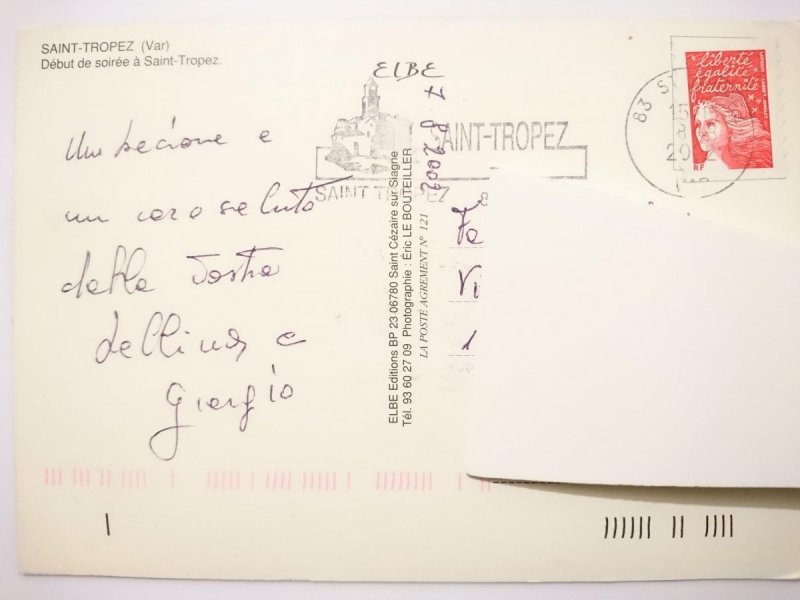 SAINT-TROPEZ (Var)
Début de soirée à Saint-Tropez.
ELBE
Un bacione e
un caro saluto
dalla Vostra
Dellina e
Giorgio
SAINT TROPEZ
SAINT-TROPEZ
7 8 2002
ELBE Editions BP 23 06780 Saint Cézaire sur Siagne
Tél. 93 60 27 09 Photographie : Éric LE BOUTEILLER
LA POSTE AGREMENT N° 121
Fa
Vi
1
83 ST
liberté
égalité
fraternité
RF